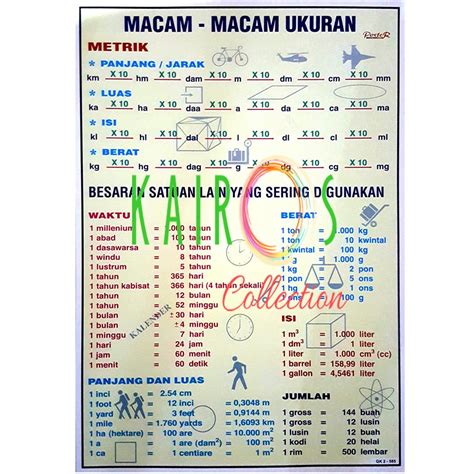 MACAM - MACAM UKURAN
PosteR
METRIK
* PANJANG / JARAK
X 10 X 10 X 10 X 10 X 10 X 10
km hm dam m dm cm mm
* LUAS
X 10 X 10 X 10 X 10 X 10 X 10
ka ha daa a da ca ma
* ISI
X 10 X 10 X 10 X 10 X 10 X 10
kl hl dal l dl cl ml
* BERAT
X 10 X 10 X 10 X 10 X 10
kg hg dag g dg cg mg
BESARAN SATUAN LAIN YANG SERING DIGUNAKAN
KAIROS
Collection
WAKTU
1 millenium = 1.000 tahun
1 abad = 100 tahun
1 dasawarsa = 10 tahun
1 windu = 8 tahun
1 lustrum = 5 tahun
1 tahun = 365 hari
1 tahun kabisat = 366 hari (4 tahun sekali)
1 tahun = 12 bulan
1 tahun = 52 minggu
1 bulan = ± 30 hari
1 bulan = ± 4 minggu
1 minggu = 7 hari
1 hari = 24 jam
1 jam = 60 menit
1 menit = 60 detik
KALENDER
BERAT
1 ton = kg
1 ton = 10 kwintal
1 kwintal = 100 kg
1 kg = 2 pon
1 kg = ons
1 pon = 5 ons
ISI
1 m³ = 1.000 liter
1 dm³ = 1 liter
1 barrel = 158,99 liter
1 gallon = 4,5461 liter
PANJANG DAN LUAS
1 inci = 2.54 cm
1 foot = 12 inci = 0,3048 m
1 yard = 3 feet = 0,9144 m
1 mile = 1.760 yards = 1,6093 km
1 ha (hektare) = 100 are = 10.000 m²
1 are = 1 are (dam²) = 100 m²
1 ca (centiare) = 1 m²
JUMLAH
1 gross = 144 buah
1 gross = 12 lusin
1 lusin = 12 buah
1 kodi = 20 helai
1 rim = 500 lembar
GK 2 - 565